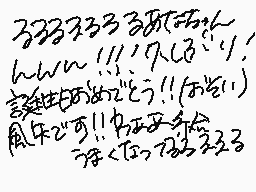 るるるえるろるあなちゃん
んんWい!!!!久しぶり!
誕生日おめでとう!!(おそい)
風失です!!わああ絵
うまくなってるろええる